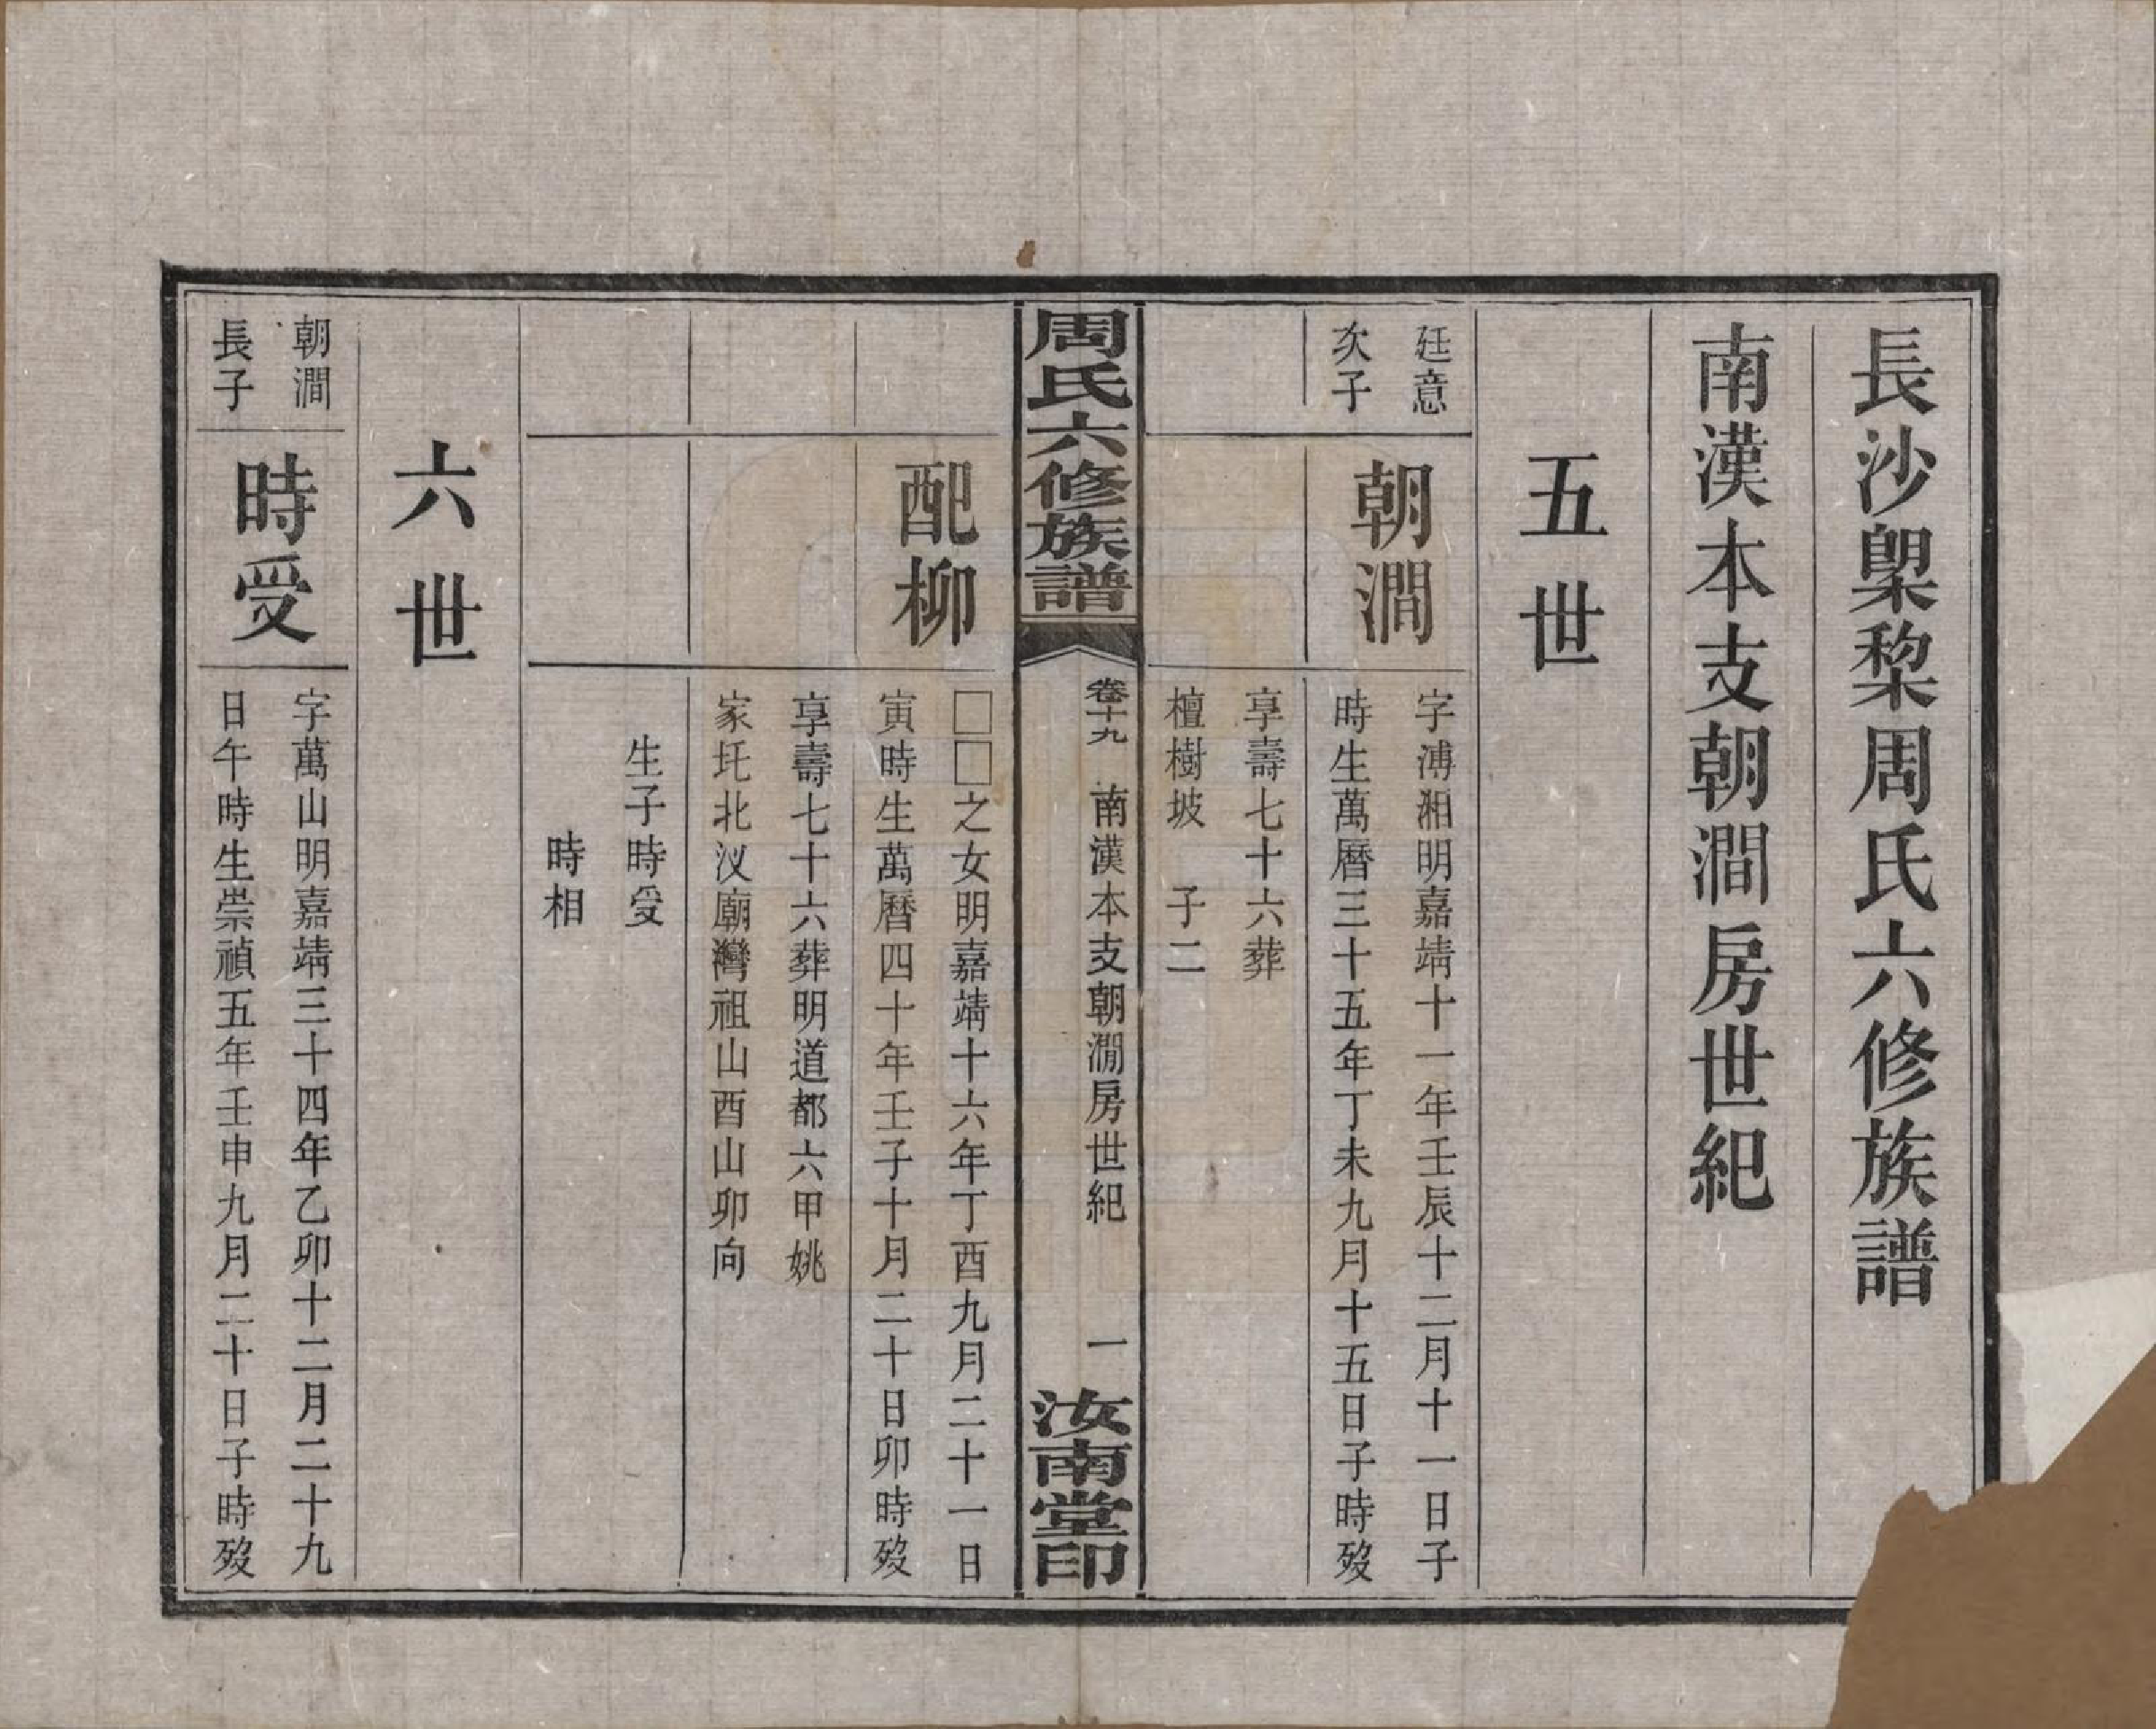 長沙㮚棃周氏六修族譜
南漢本支朝澗房世紀
五世
廷意
次子
朝澗
字溥湘明嘉靖十一年壬辰十二月十一日子
時生萬曆三十五年丁未九月十五日子時歿
享壽七十六葬
檀樹坡 子二
周氏六修族譜
卷十九 南漢本支朝澗房世紀 一
汝南堂印
配柳
□□之女明嘉靖十六年丁酉九月二十一日
寅時生萬曆四十年壬子十月二十日卯時歿
享壽七十六葬明道都六甲姚
家圫北汊廟灣祖山酉山卯向
生子時受
時相
六世
朝澗
長子
時受
字萬山明嘉靖三十四年乙卯十二月二十九
日午時生崇禎五年壬申九月二十日子時歿